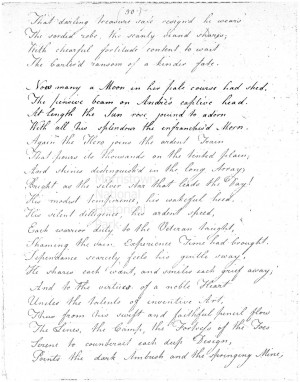 (30)
That darling treasure sav'd resign'd he wears
The sordid robe, the scanty viand shares;
With chearful fortitude content to wait
The barter'd ransom of a kinder fate.
Now many a Moon in her pale course had shed,
The pensive beam on Andrè's captive head.
At length the Sun rose jocund to adorn
With all his splendour the enfranchis'd Morn.
Again the Hero joins the ardent Train
That pours its thousands on the tented plain,
And shines distinguish'd in the long Array,
Bright as the silver star that leads the Day!
His modest temperance, his wakeful heed,
His silent dilligence, his ardent speed,
Each warrior duty to the Veteran taught,
Shaming the vain Experience Time had brought.
Dependance scarcely feels his gentle sway,
He shares each want, and smiles each grief away;
And to the virtues of a noble Heart
Unites the talents of inventive Art,
Thus from his swift and faithful pencil flow
The Lines, the Camp, the Fortress of the Foe
Serene to counteract each deep Design,
Points the dark Ambush and the springing Mine;